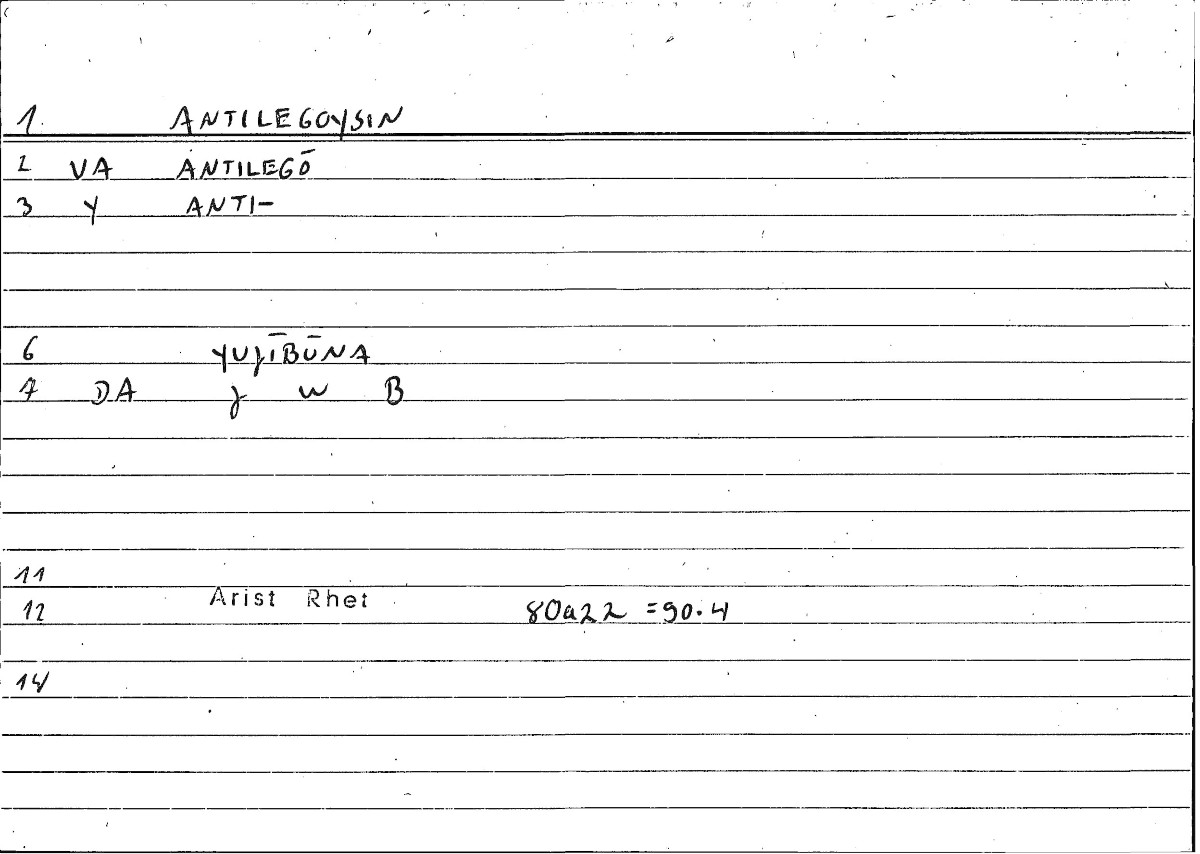 1. ANTILEGOYSIN
2 VA ANTILEGŌ
3 Y ANTI-
6 YUJĪBŪNA
7 DA J W B
11
12 Arist Rhet 80a22 =90.4
14